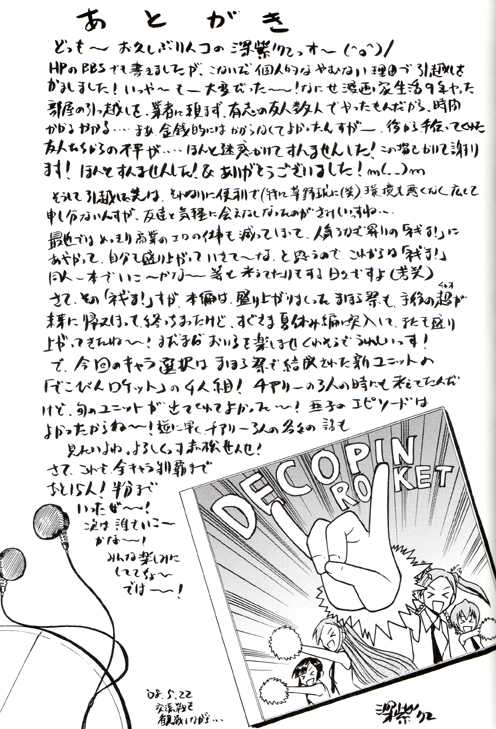 あとがき
どっも〜お久しぶりんコの深紫クっす〜(^o^)/
HPのBBSでも書きましたが、こないだ個人的なやむない理由で引越しを
かましました!いっや〜も〜大変だった〜!なにせ漫画家生活9年やった
部屋の引っ越しを、業者に頼まず、有志の友人数人でやったもんだから、時間
かかるかかる…まあ金銭的にはかからなくてよかったんすがー、後から手伝ってくれた
友人たちからの不平が…ほんと迷惑かけてすんませんした!この場をかりて謝り
ます!ほんとすんませんした!&ありがとうございました!m(__)m
そうして引越し先は、それなりに便利で
環境も悪くなく広くて
申し分ないんすが、友達と気軽に会えなくなったのがさみしいすね…
最近ではめっきり商業のエロの仕事も減ってしまって、人気うなぎ昇りの「ネギま!」に
あやかって、自分も盛り上がっていきて〜な、と思うので、これからは「ネギま!」
同人一本でいこ〜かな〜
等と考えてたりする日々ですよ(苦笑)
さて、その「ネギま!」すが、本編は、盛り上がりましたまほら祭も、
超が
未来に帰っちまって、終っちまったけど、すぐさま夏休み編に突入して、またも盛り
上がってきたね〜!まだまだおいらを楽しませてくれそうでうれしいっす!
で、今回のキャラ選択はまほら祭で結成された新ユニットの
「でこぴんロケット」の4人組!チアリーの3人の時にも考えてたんだ
けど、旬のユニットが出てきてくれてよかって〜!亜子のエピソードは
よかったからね〜!逆に早くチアリー3人の各々の話も
見たいよね。よろしくっす赤松せんせ!
さて、これで全キャラ制覇まで
あと15人!半分まで
いったぜ〜!
次は誰でいこ〜
かな〜!
みんな楽しみに
しててねよ〜
では〜!
DECOPIN
ROCKET
'08.5.22
交流戦を
観戦しながら…
深紫クロ